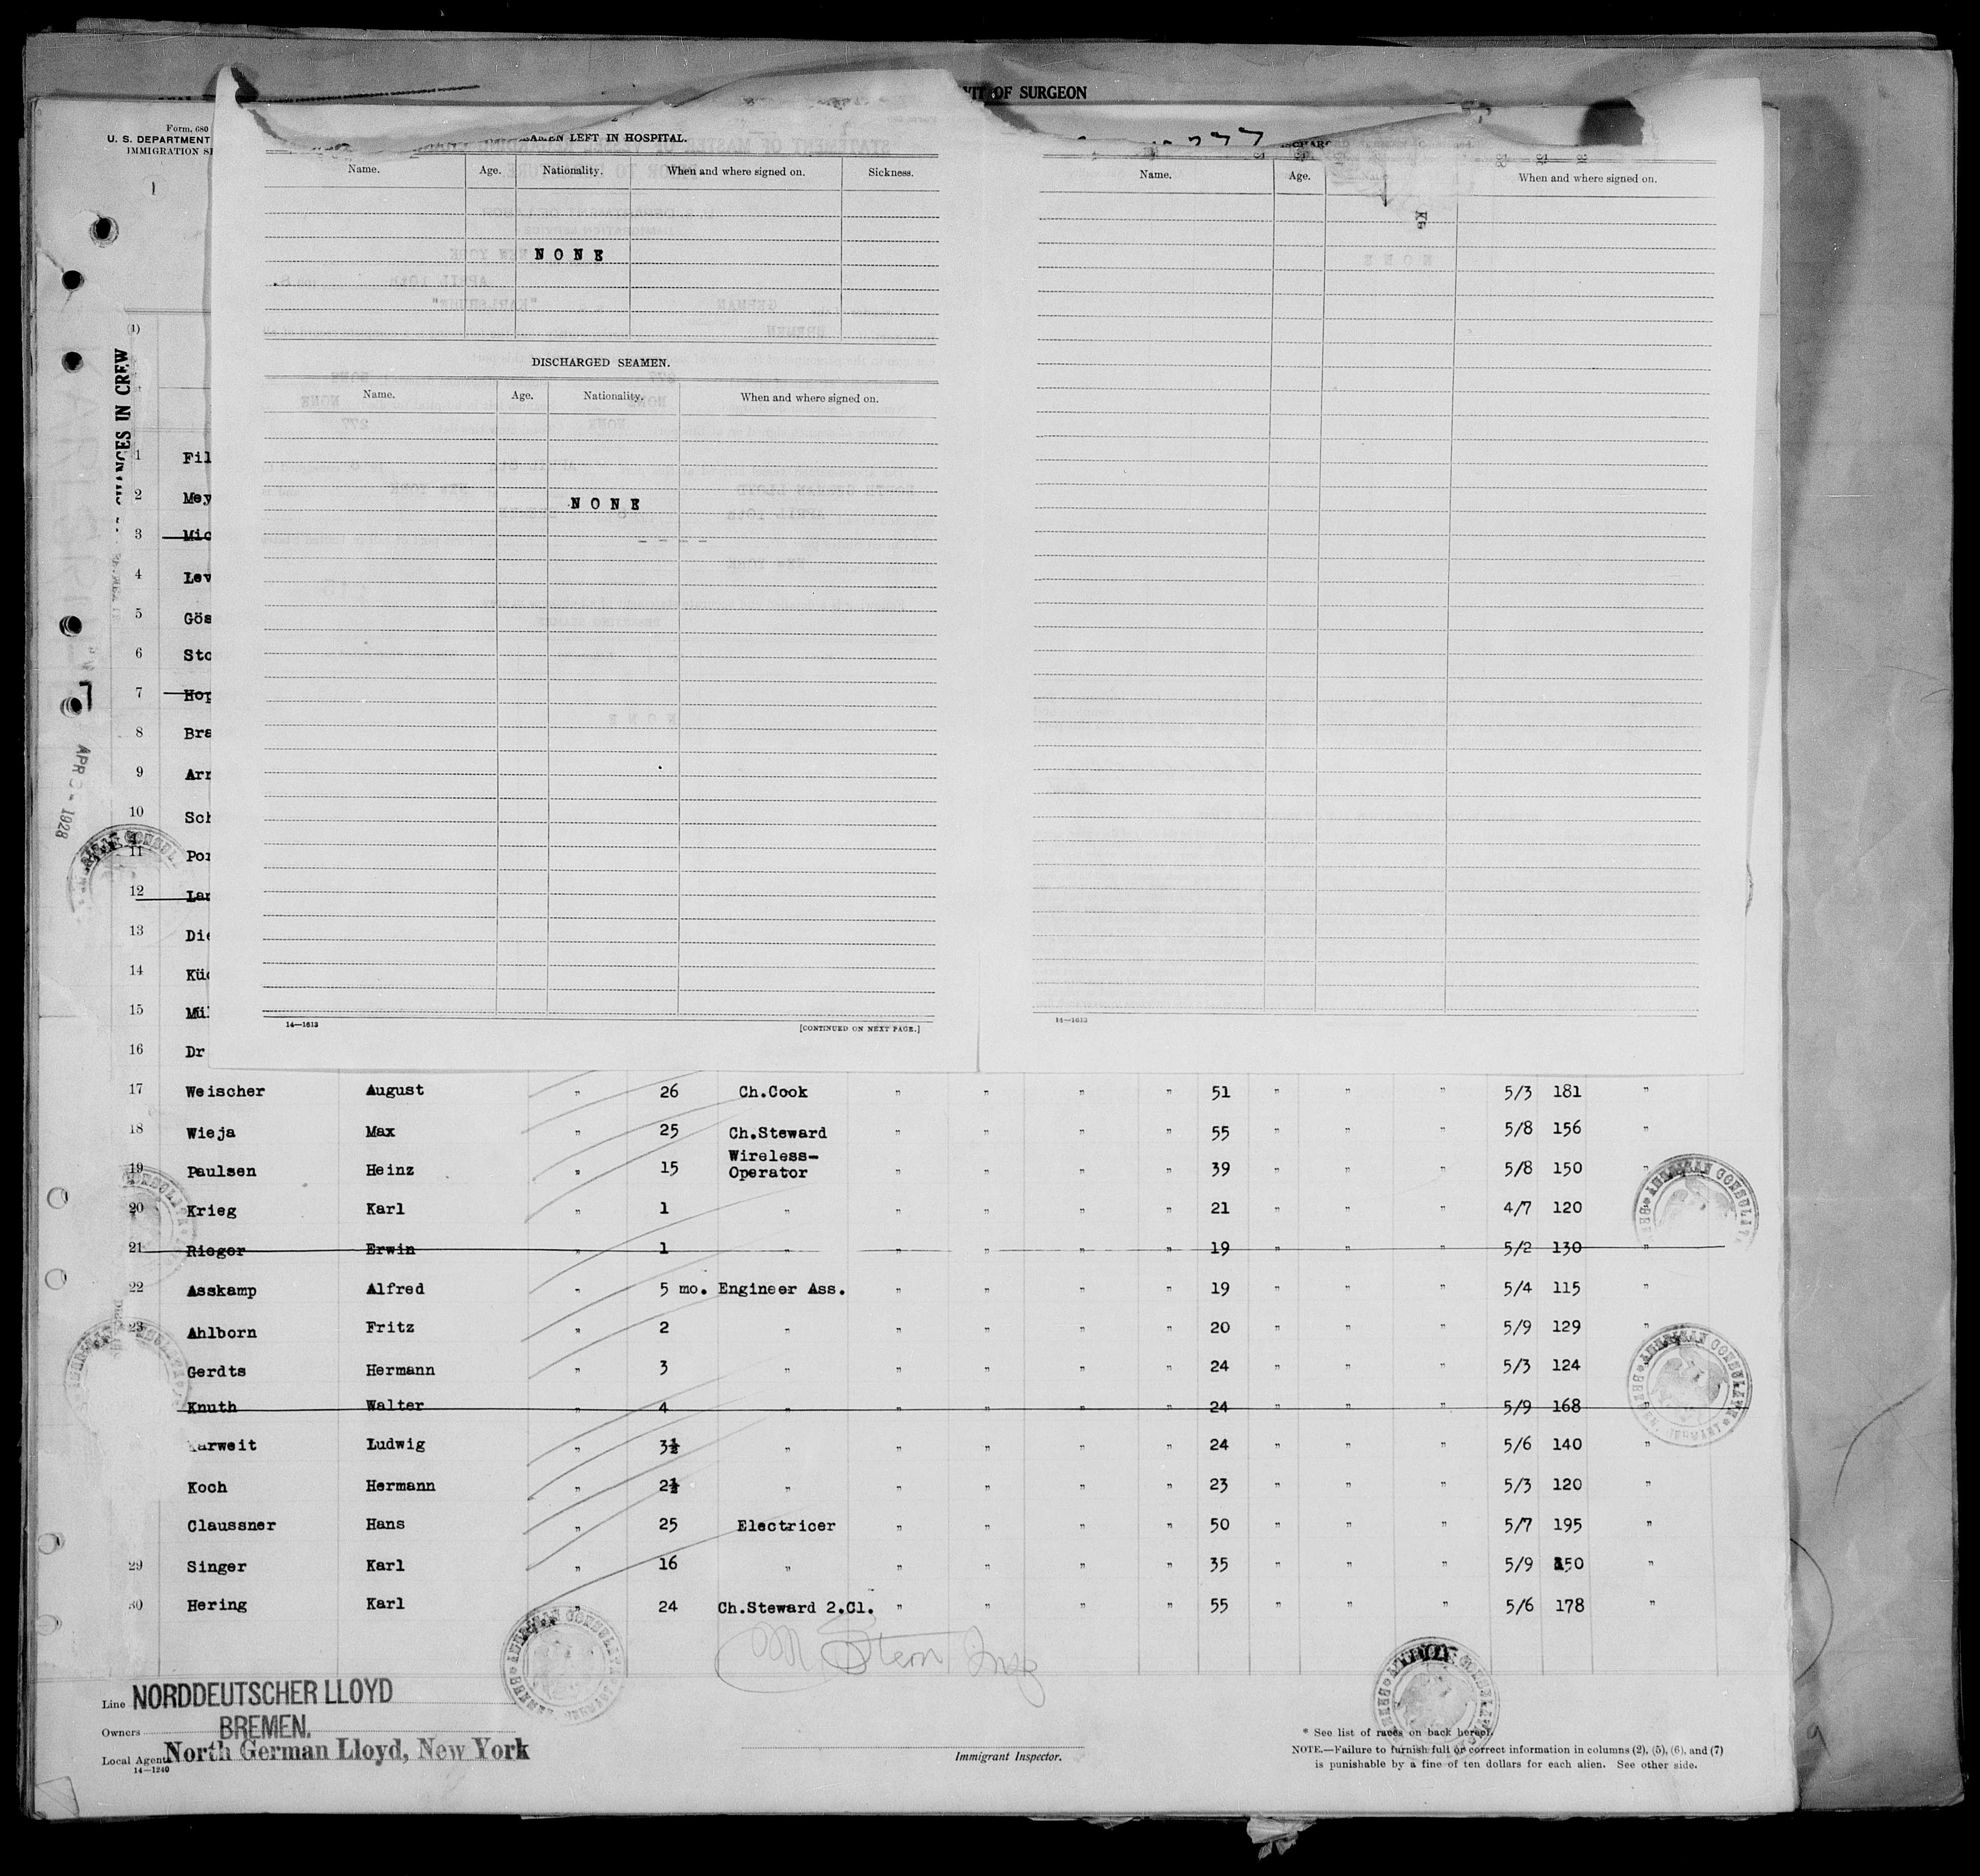 OF SURGEON
Form. 680
U. S. DEPARTMENT
IMMIGRATION
SEAMEN LEFT IN HOSPITAL.
Name. Age. Nationality. When and where signed on. Sickness.
NONE
DISCHARGED SEAMEN.
Name. Age. Nationality. When and where signed on.
NONE
14—1613
[CONTINUED ON NEXT PAGE.]
Name. Age. When and where signed on.
14—1613
CHANGES IN CREW
APR 1928
(1)
1 Fil
2 Mey
3 Mic
4 Lev
5 Gös
6 Sto
7 Hop
8 Bra
9 Arr
10 Sch
11 Por
12 Lan
13 Die
14 Küc
15 Mül
16 Dr
17 Weischer August " 26 Ch.Cook " " " " 51 " " " 5/3 181 "
18 Wieja Max " 25 Ch.Steward " " " " 55 " " " 5/8 156 "
19 Paulsen Heinz " 15 Wireless-Operator " " " " 39 " " " 5/8 150 "
20 Krieg Karl " 1 " " " " " 21 " " " 4/7 120 "
21 Rieger Erwin " 1 " " " " " 19 " " " 5/2 130 "
22 Asskamp Alfred " 5 mo. Engineer Ass. " " " " 19 " " " 5/4 115 "
23 Ahlborn Fritz " 2 " " " " " 20 " " " 5/9 129 "
Gerdts Hermann " 3 " " " " " 24 " " " 5/3 124
Knuth Walter " 4 " " " " " 24 " " " 5/9 168
Karweit Ludwig " 3½ " " " " " 24 " " " 5/6 140 "
Koch Hermann " 2½ " " " " " 23 " " " 5/3 120 "
Claussner Hans " 25 Electricer " " " " 50 " " " 5/7 195 "
29 Singer Karl " 16 " " " " " 35 " " " 5/9 150 "
30 Hering Karl " 24 Ch.Steward 2.Cl. " " " " 55 " " " 5/6 178 "
M Stern Insp
Line NORDDEUTSCHER LLOYD
Owners BREMEN.
Local Agent North German Lloyd, New York
14—1240
Immigrant Inspector.
* See list of races on back hereof.
NOTE.—Failure to furnish full or correct information in columns (2), (5), (6), and (7)
is punishable by a fine of ten dollars for each alien. See other side.
AMERICAN CONSULATE
BREMEN, GERMANY